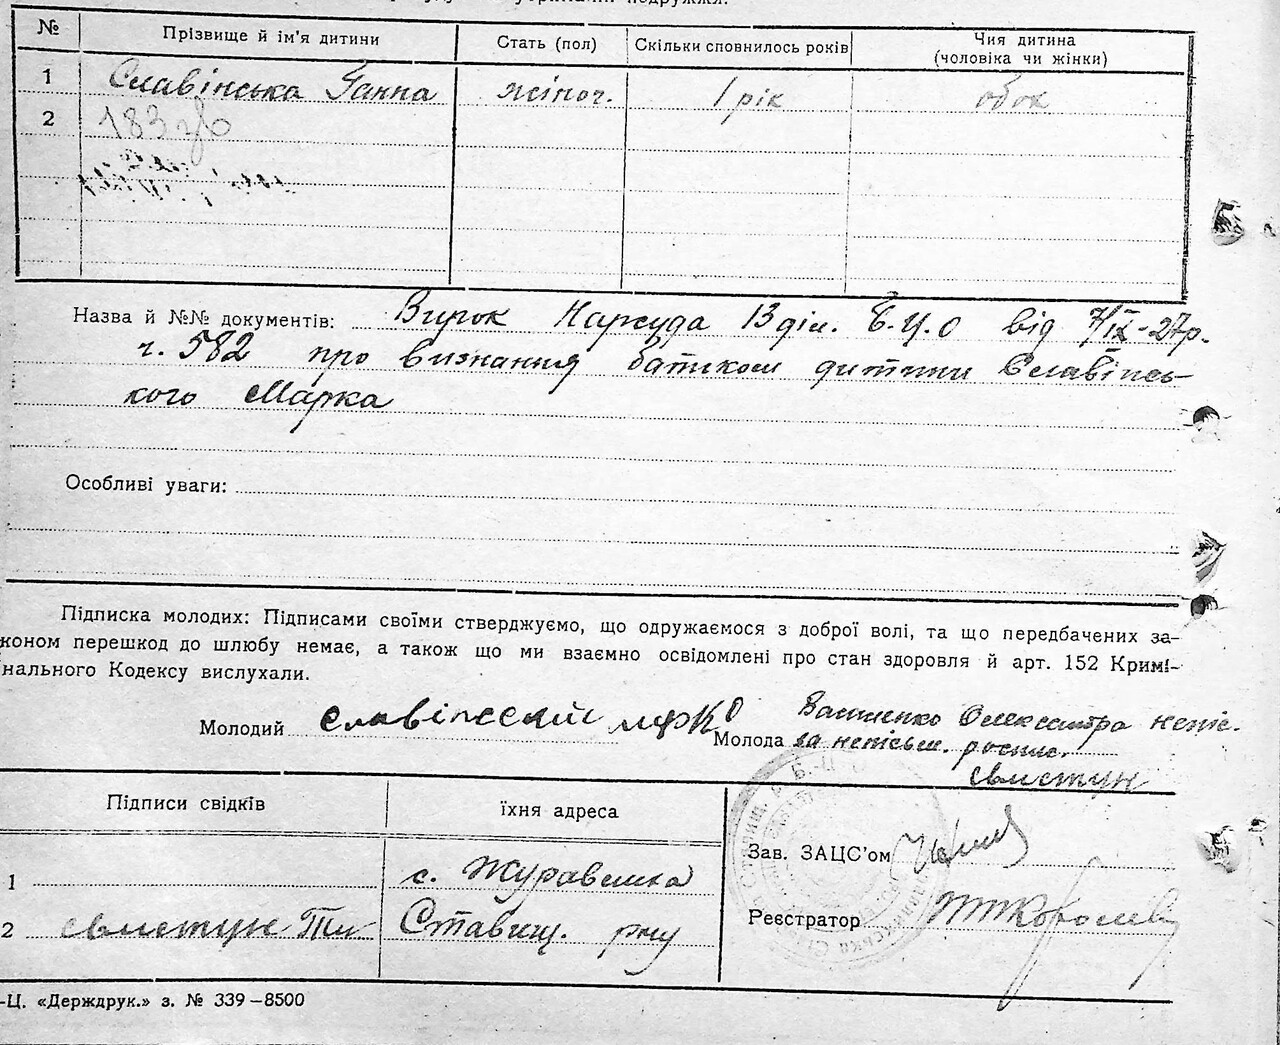 подружжя.
№ Прізвище й ім'я дитини Стать (пол) Скільки сповнилось років Чия дитина (чоловіка чи жінки)
1 Славінська Ганна жіноч. 1 рік обох
2 183
Назва й №№ документів: Вирок Нарсуда 13 діл. Б.Ц.О від 7/IX-27р.
ч. 582 про визнання батьком дитини Славінсь-
кого Марка
Особливі уваги:
Підписка молодих: Підписами своїми стверджуємо, що одружаємося з доброї волі, та що передбачених за-
коном перешкод до шлюбу немає, а також що ми взаємно освідомлені про стан здоровля й арт. 152 Кримі-
нального Кодексу вислухали.
Молодий Славінский мрко
Молода Василенко Олександра непис.
за неписьм. роспис.
Свистун
Підписи свідків їхня адреса
Зав. ЗАЦС'ом
1 с. Журавлиха
Реєстратор
2 Свистун Ти Ставищ. р-ну
-Ц. «Держдрук.» з. № 339-8500